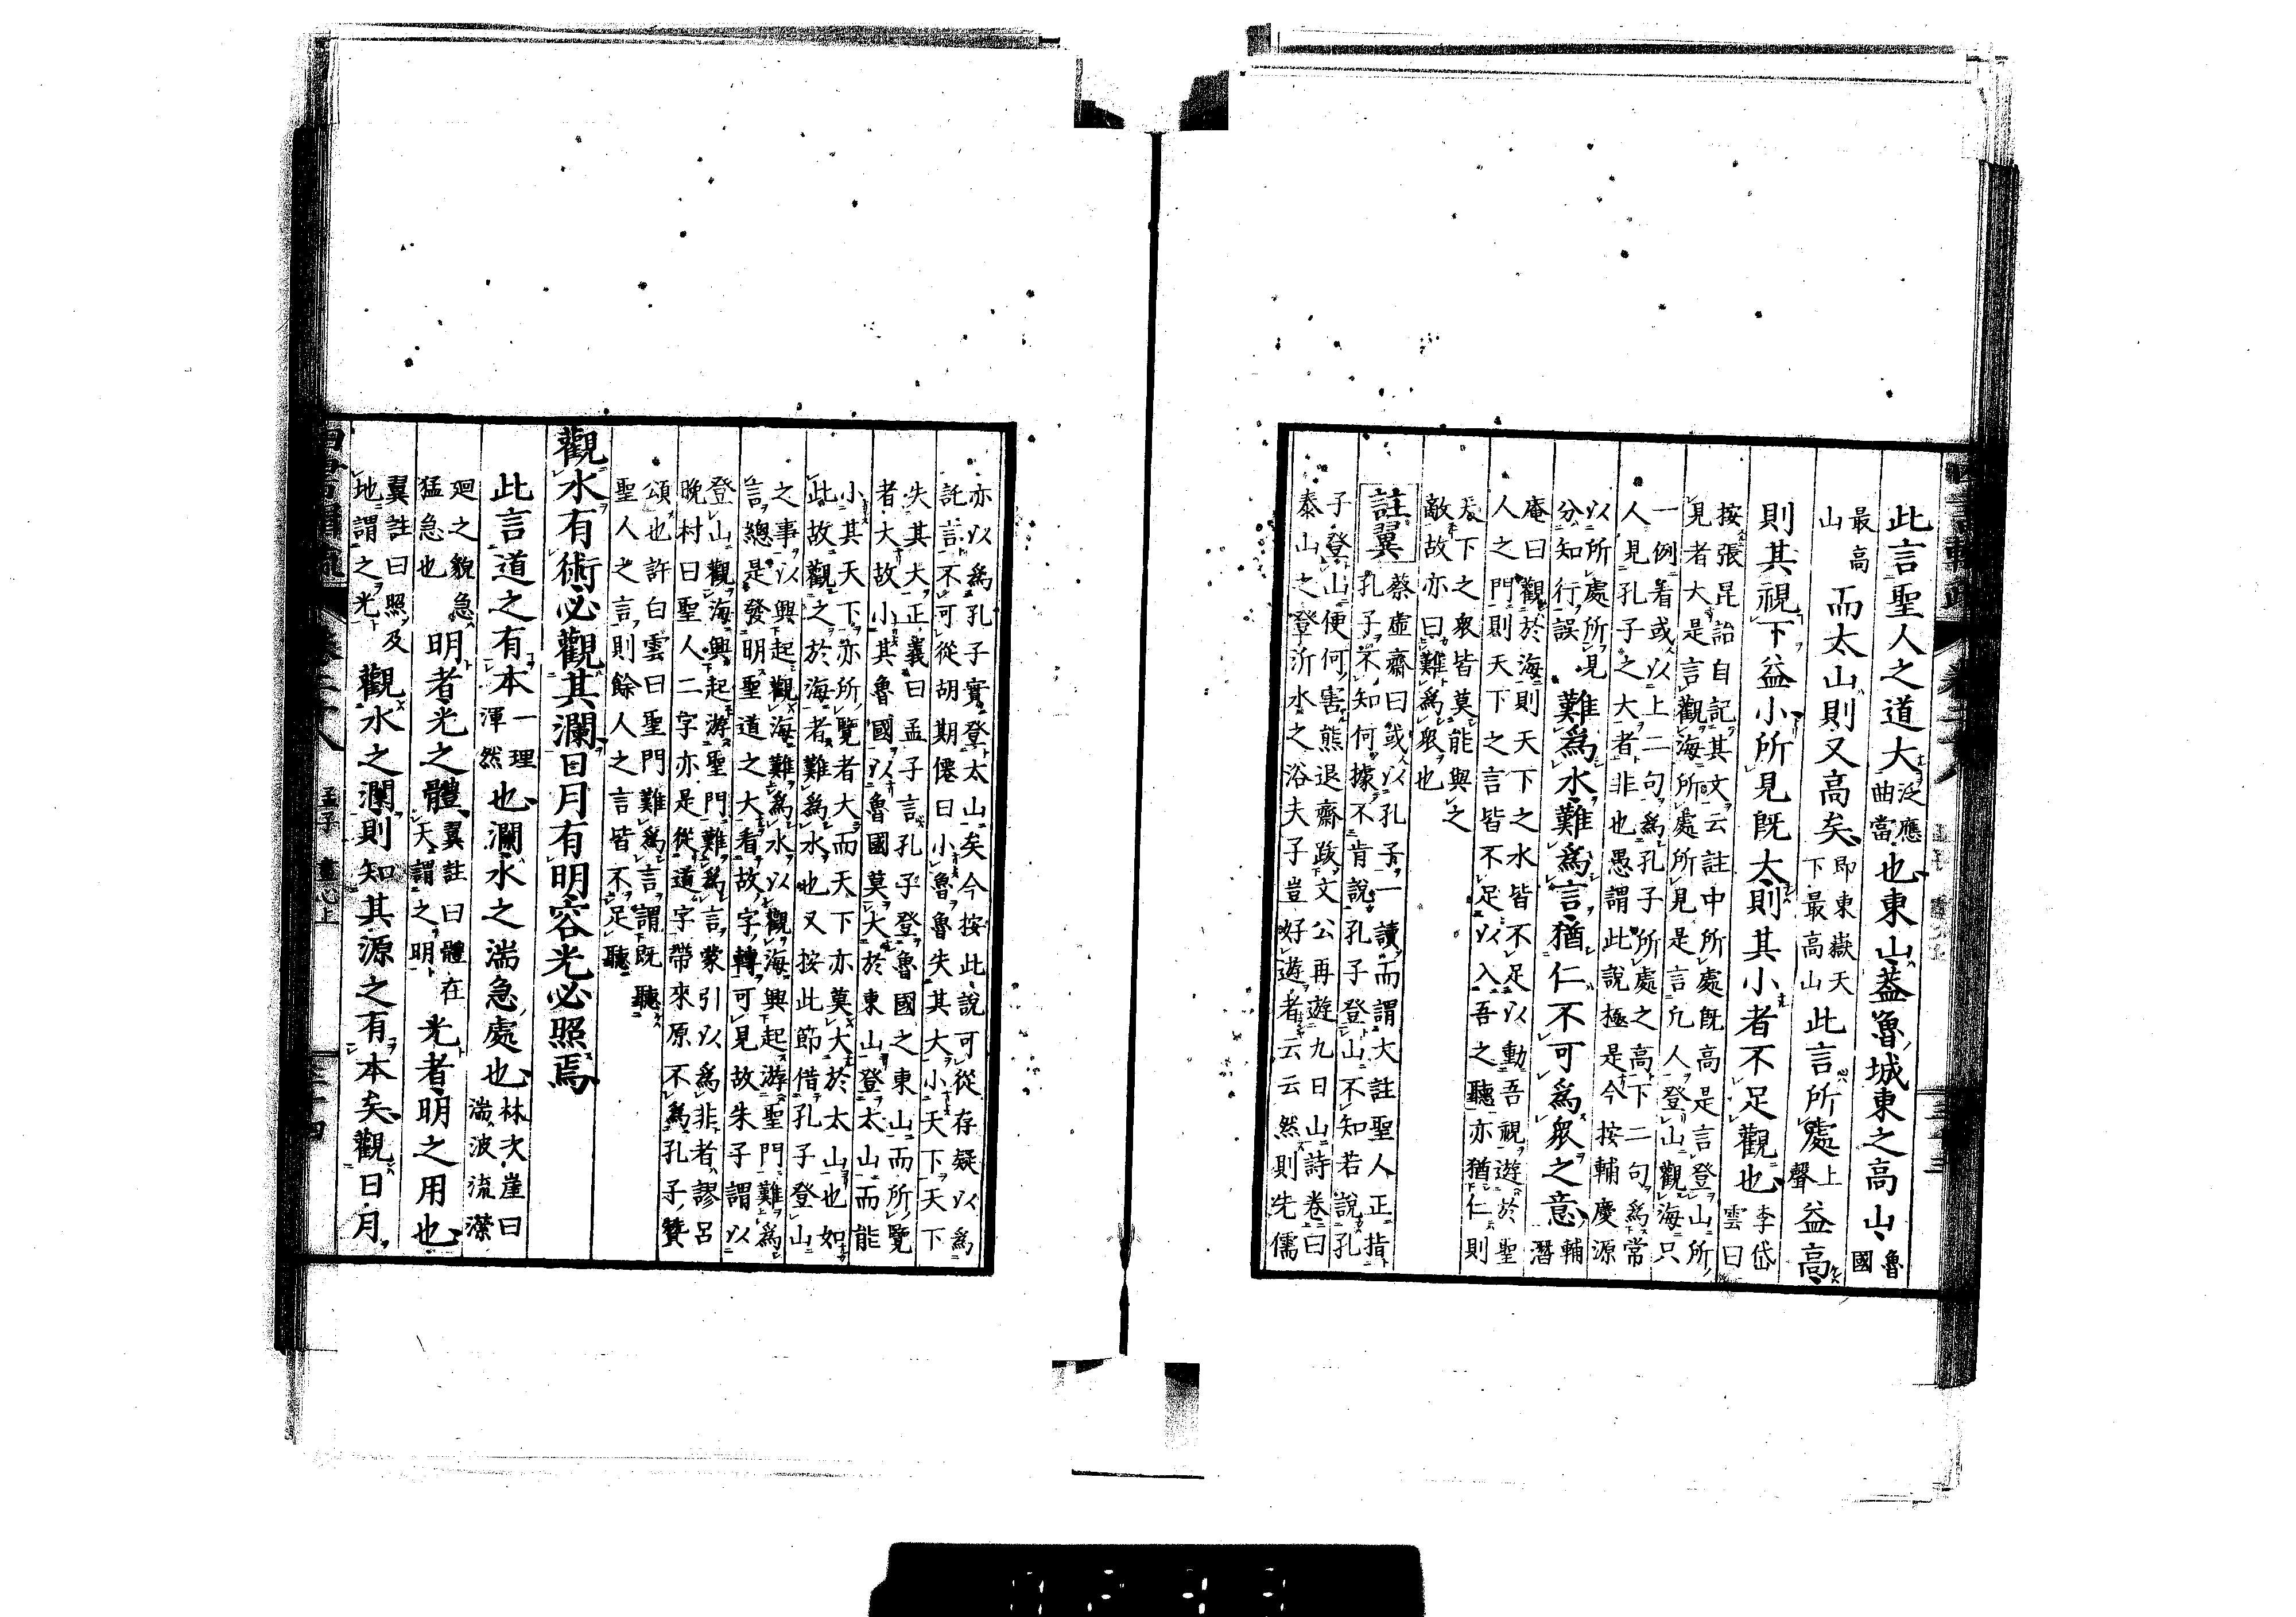 此言聖人之道大泛應曲當也東山蓋魯城東之高山魯國
最高山而太山則又高矣即東嶽天下最高山此言所處上聲益高
則其視下益小所見既大則其小者不足觀也李岱雲曰
按張昆詒自記其文云註中所處既高是言登山所
見者大是言觀海所處所見是言凢人登山觀海只
一例着或以上二句爲孔子所處之高下二句爲常
人見孔子之大者非也愚謂此說極是今按輔慶源
以所處所見分知行誤難爲水難爲言猶仁不可爲衆之意輔潛
庵曰觀於海則天下之水皆不足以動吾視遊於聖
人之門則天下之言皆不足以入吾之聽亦猶仁則
天下之衆皆莫能與之
敵故亦曰難爲衆也
註翼蔡虛齋曰或以孔子一讀而謂大註聖人正指
孔子不知何據不肯說孔子登山不知若說孔
子登山便何害熊退齋跋文公再遊九日山詩卷曰
泰山之登沂水之浴夫子豈好遊者云云然則先儒
亦以爲孔子實登太山矣今按此說可從存疑以爲
託言不可從胡期僊曰小魯魯失其大小天下天下
失其大正義曰孟子言孔子登魯國之東山而所覽
者大故小其魯國以魯國莫大於東山登太山而能
小其天下亦所覽者大而天下亦莫大於太山也如
此故觀之於海者難爲水也又按此節借孔子登山
之事以興起觀海難爲水以觀海興起游聖門難爲
言總是發明聖道之大看故字轉可見故朱子謂以
登山觀海興起游聖門難爲言蒙引以爲非者謬呂
晚村曰聖人二字亦是從道字帶來原不爲孔子贊
頌也許白雲曰聖門難爲言謂既聽
聖人之言則餘人之言皆不足聽
觀水有術必觀其瀾日月有明容光必照焉
此言道之有本一理渾然也瀾水之湍急處也林次崖曰湍波流瀠
廻之貌急猛急也明者光之體翼註曰體在天謂之明光者明之用也
翼註曰照及地謂之光觀水之瀾則知其源之有本矣觀日月
孟子 盡心上